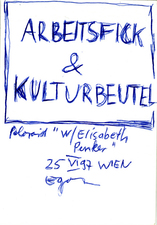 ARBEITSFICK
&
KULTURBEUTEL
Polaroid "W/Elisabeth
Penker"
25 VI 97 WIEN